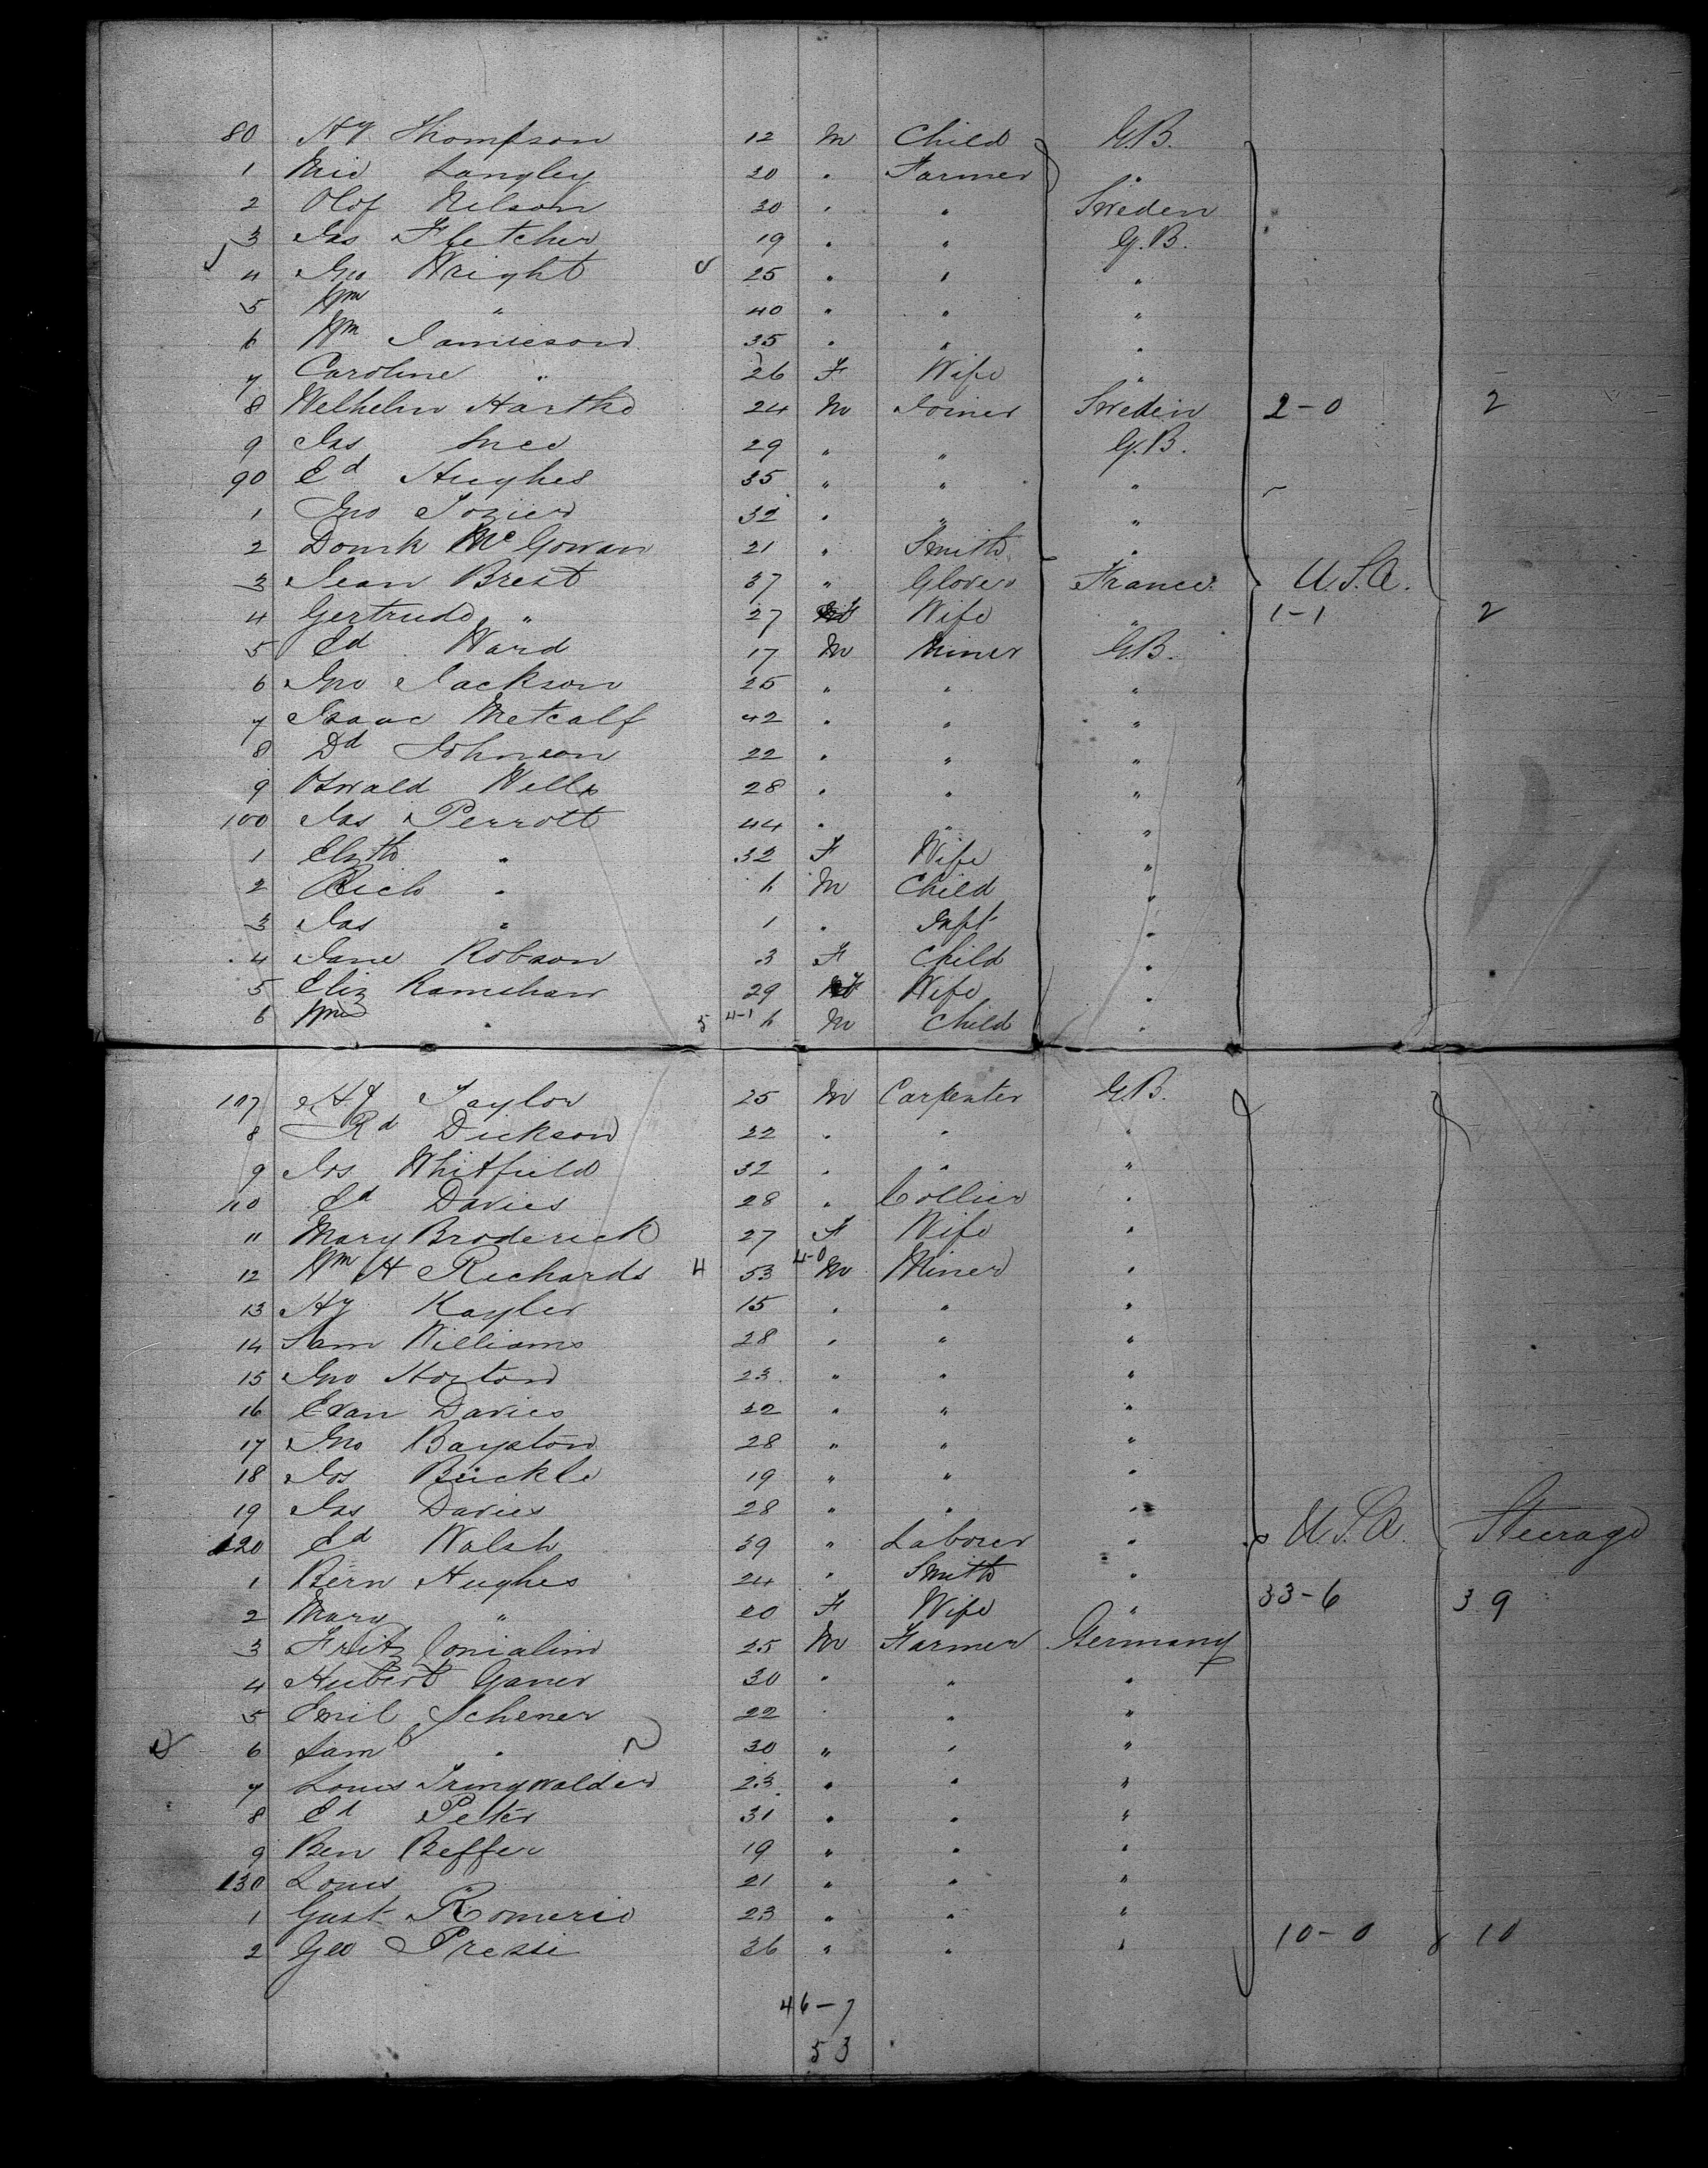 80 Hy Thompson 12 M Child G.B.
1 Langley 30 " Farmer "
2 Olof Nelson 30 " " Sweden
3 Jas Fletcher 19 " " G.B.
4 Geo Wright 25 " " "
5 Wm " 40 " " "
6 Wm Jamieson 35 " " "
7 Caroline " 26 F Wife "
8 Welhelm Hartho 24 M Joiner Sweden 2-0 2
9 Jas Ince 29 " " G.B.
90 Ed Hughes 35 " " "
1 Jno Tozier 32 " " "
2 Domk McGowan 21 " Smith "
3 Jean Brest 37 " Glover France U.S.A.
4 Gertrude " 27 F Wife " 1-1 2
5 Ed Ward 17 M Miner G.B.
6 Jno Jackson 25 " " "
7 Isaac Metcalf 42 " " "
8 Dd Johnson 22 " " "
9 Oswald Wells 28 " " "
100 Jas Perrott 44 " " "
1 Elizth " 32 F Wife "
2 Rich " 6 M Child "
3 Jas " 1 " Inft "
4 Jane Robson 3 F Child "
5 Eliz Ramshaw 29 F Wife "
6 Wm " 5 4-1 6 M Child "
107 Hy Taylor 25 M Carpenter G.B.
8 Rd Dickson 22 " " "
9 Jos Whitfield 32 " " "
110 Ed Davies 28 " Collier "
11 Mary Broderick 27 F Wife "
12 Wm H Richards 4 53 4-0 M Miner "
13 Hy Kayler 15 " " "
14 Sam Williams 28 " " "
15 Jno Horton 23 " " "
16 Evan Davies 22 " " "
17 Jno Bayston 28 " " "
18 Jos Buckle 19 " " "
19 Jas Davies 28 " " "
120 Ed Walsh 39 " Laborer " U.S.A. Steerage
1 Bern Hughes 24 " Smith "
2 Mary " 20 F Wife " 33-6 39
3 Fritz 25 M Farmer Germany
4 Hubert Ganer 30 " " "
5 Emil Schener 22 " " "
6 Saml " 30 " " "
7 Louis 23 " " "
8 Ed Peter 31 " " "
9 Ben Beffer 19 " " "
130 Louis " 21 " " "
1 Gust Romerio 23 " " "
2 Geo Pressi 36 " " " 10-0 10
46-7
53